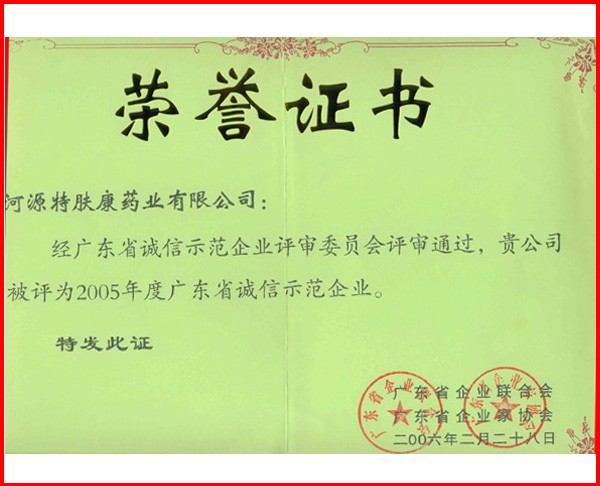 荣誉证书
河源特肤康药业有限公司：
经广东省诚信示范企业评审委员会评审通过，贵公司
被评为2005年度广东省诚信示范企业。
特发此证
广东省企业联合会
广东省企业家协会
二00六年二月二十八日